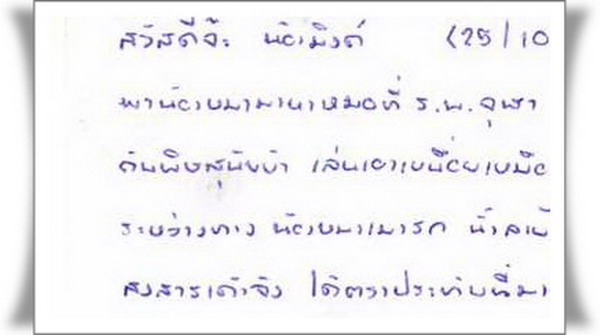 สวัสดีจ้ะ น้องมิงค์ (25/10
พาน้องหมามาหาหมอที่ ร.พ.จุฬา
ฉันพิษสุนัขบ้า เล่นเอาเหนื่อยเหมือ
ระหว่างทาง น้องหมาเมารถ น้ำลาย
สงสารเค้าจัง ได้ตราประทับที่มา